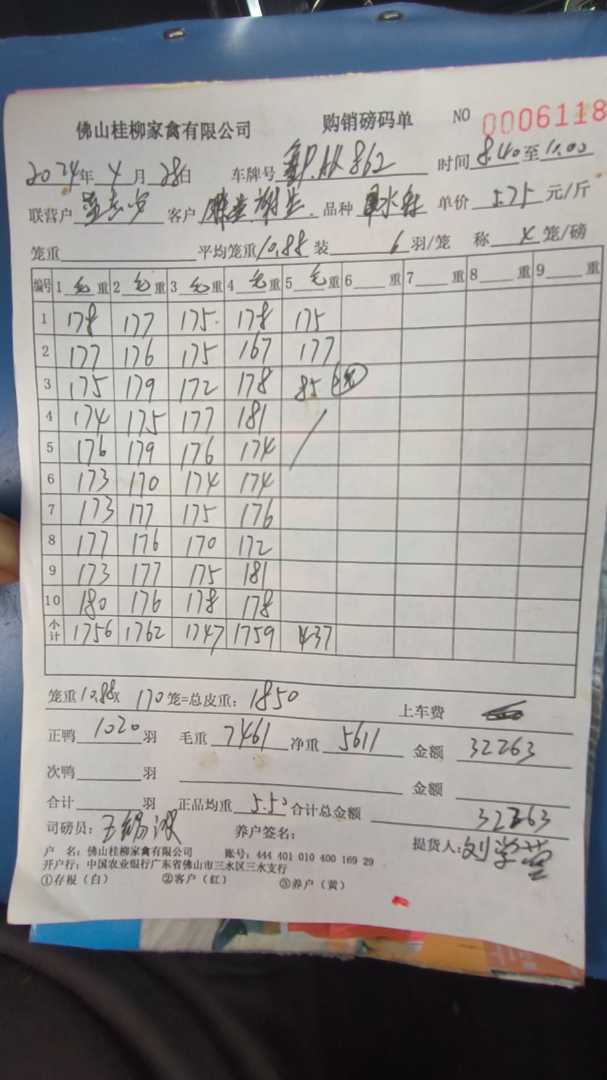 佛山桂柳家禽有限公司 购销磅码单 NO 0006118
2024年 4 月 28日 车牌号 862 时间 8.40 至 11.00
联营户 客户 品种 单价 5.75 元/斤
笼重 平均笼重 10.88 装 6 羽/笼 称 笼/磅
编号 1 毛 重 2 毛 重 3 毛 重 4 毛 重 5 毛 重 6 重 7 重 8 重 9 重
1 178 177 175 178 175
2 177 176 175 167 177
3 175 179 172 178 85
4 174 175 177 181
5 176 179 176 174
6 173 170 174 174
7 173 177 175 176
8 177 176 170 172
9 173 177 175 181
10 180 176 178 178
小计 1756 1762 1747 1759 437
笼重 10.88 x 170 笼=总皮重: 1850 上车费
正鸭 1020 羽 毛重 7461 净重 5611 金额 32263
次鸭 羽 金额
合计 羽 正品均重 5.50 合计总金额 32263
司磅员: 养户签名: 提货人:
户 名: 佛山桂柳家禽有限公司 账号: 444 401 010 400 169 29
开户行: 中国农业银行广东省佛山市三水区三水支行
①存根（白） ②客户（红） ③养户（黄）